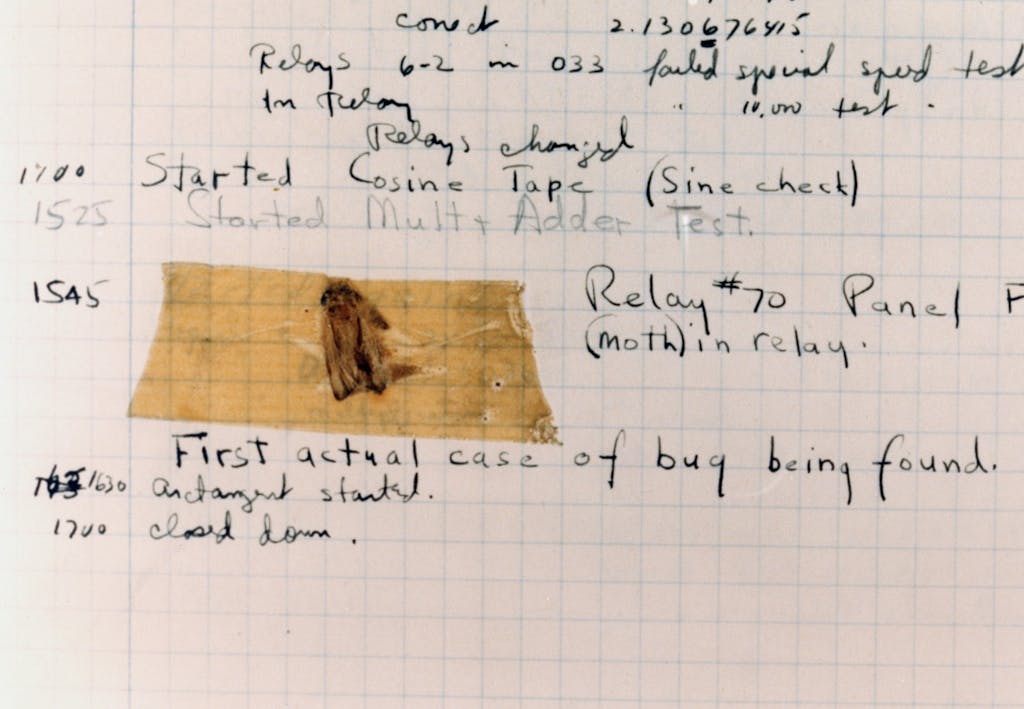 conect 2.130676415
Relays 6-2 in 033 failed special speed test
In Relay " 10,000 test .
Relays changed
1700 Started Cosine Tape (Sine check)
1525 Started Mult + Adder Test.
1545 Relay #70 Panel F
(moth) in relay.
First actual case of bug being found.
1630 arctangent started.
1700 closed down .